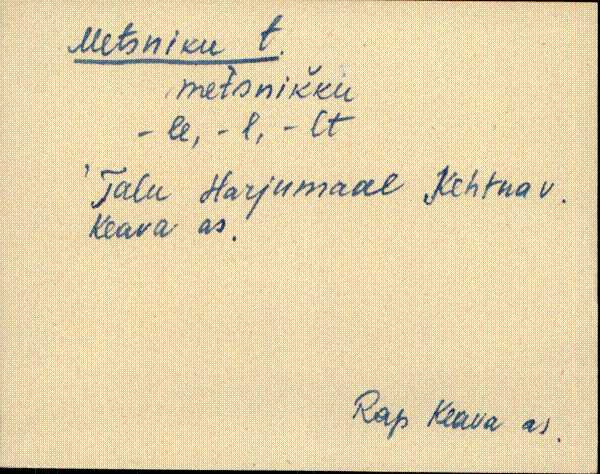 Metsniku t.
metsnikku
- le, - l, - lt
Talu Harjumaal Kehtna v.
Keava as.
Rap Keava as.